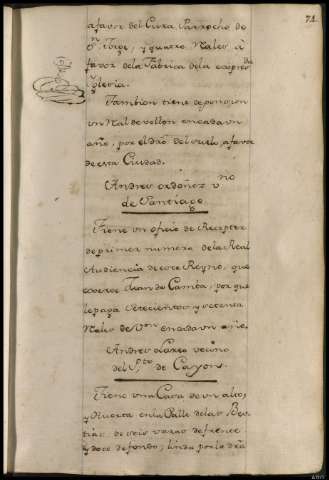 71.
afavor del Cura Parrocho de
Sn. Jorge, y quatro Reales à
favor dela Fabrica dela expresda.
Yglesia.
Tambien tiene de pension
un Real de vellon encadaun
año, por el dro. del suelo, afavor
de esta Ciudad.
Andres ordoñez vno.
de Santiago
Tiene un oficio de Receptor
de primer numero dela Real
Audiencia de este Reyno, que
exerce Juan de Camba, por que
le paga setecientos y setenta
Reales de Von. encadaun año.
Andres vecino
del Pto. de Cayon.
Tiene una Casa de un alto,
y Huerta en la Calle delas Bes
tias, de seis varas de frente
y doce de fondo; linda por la dra.